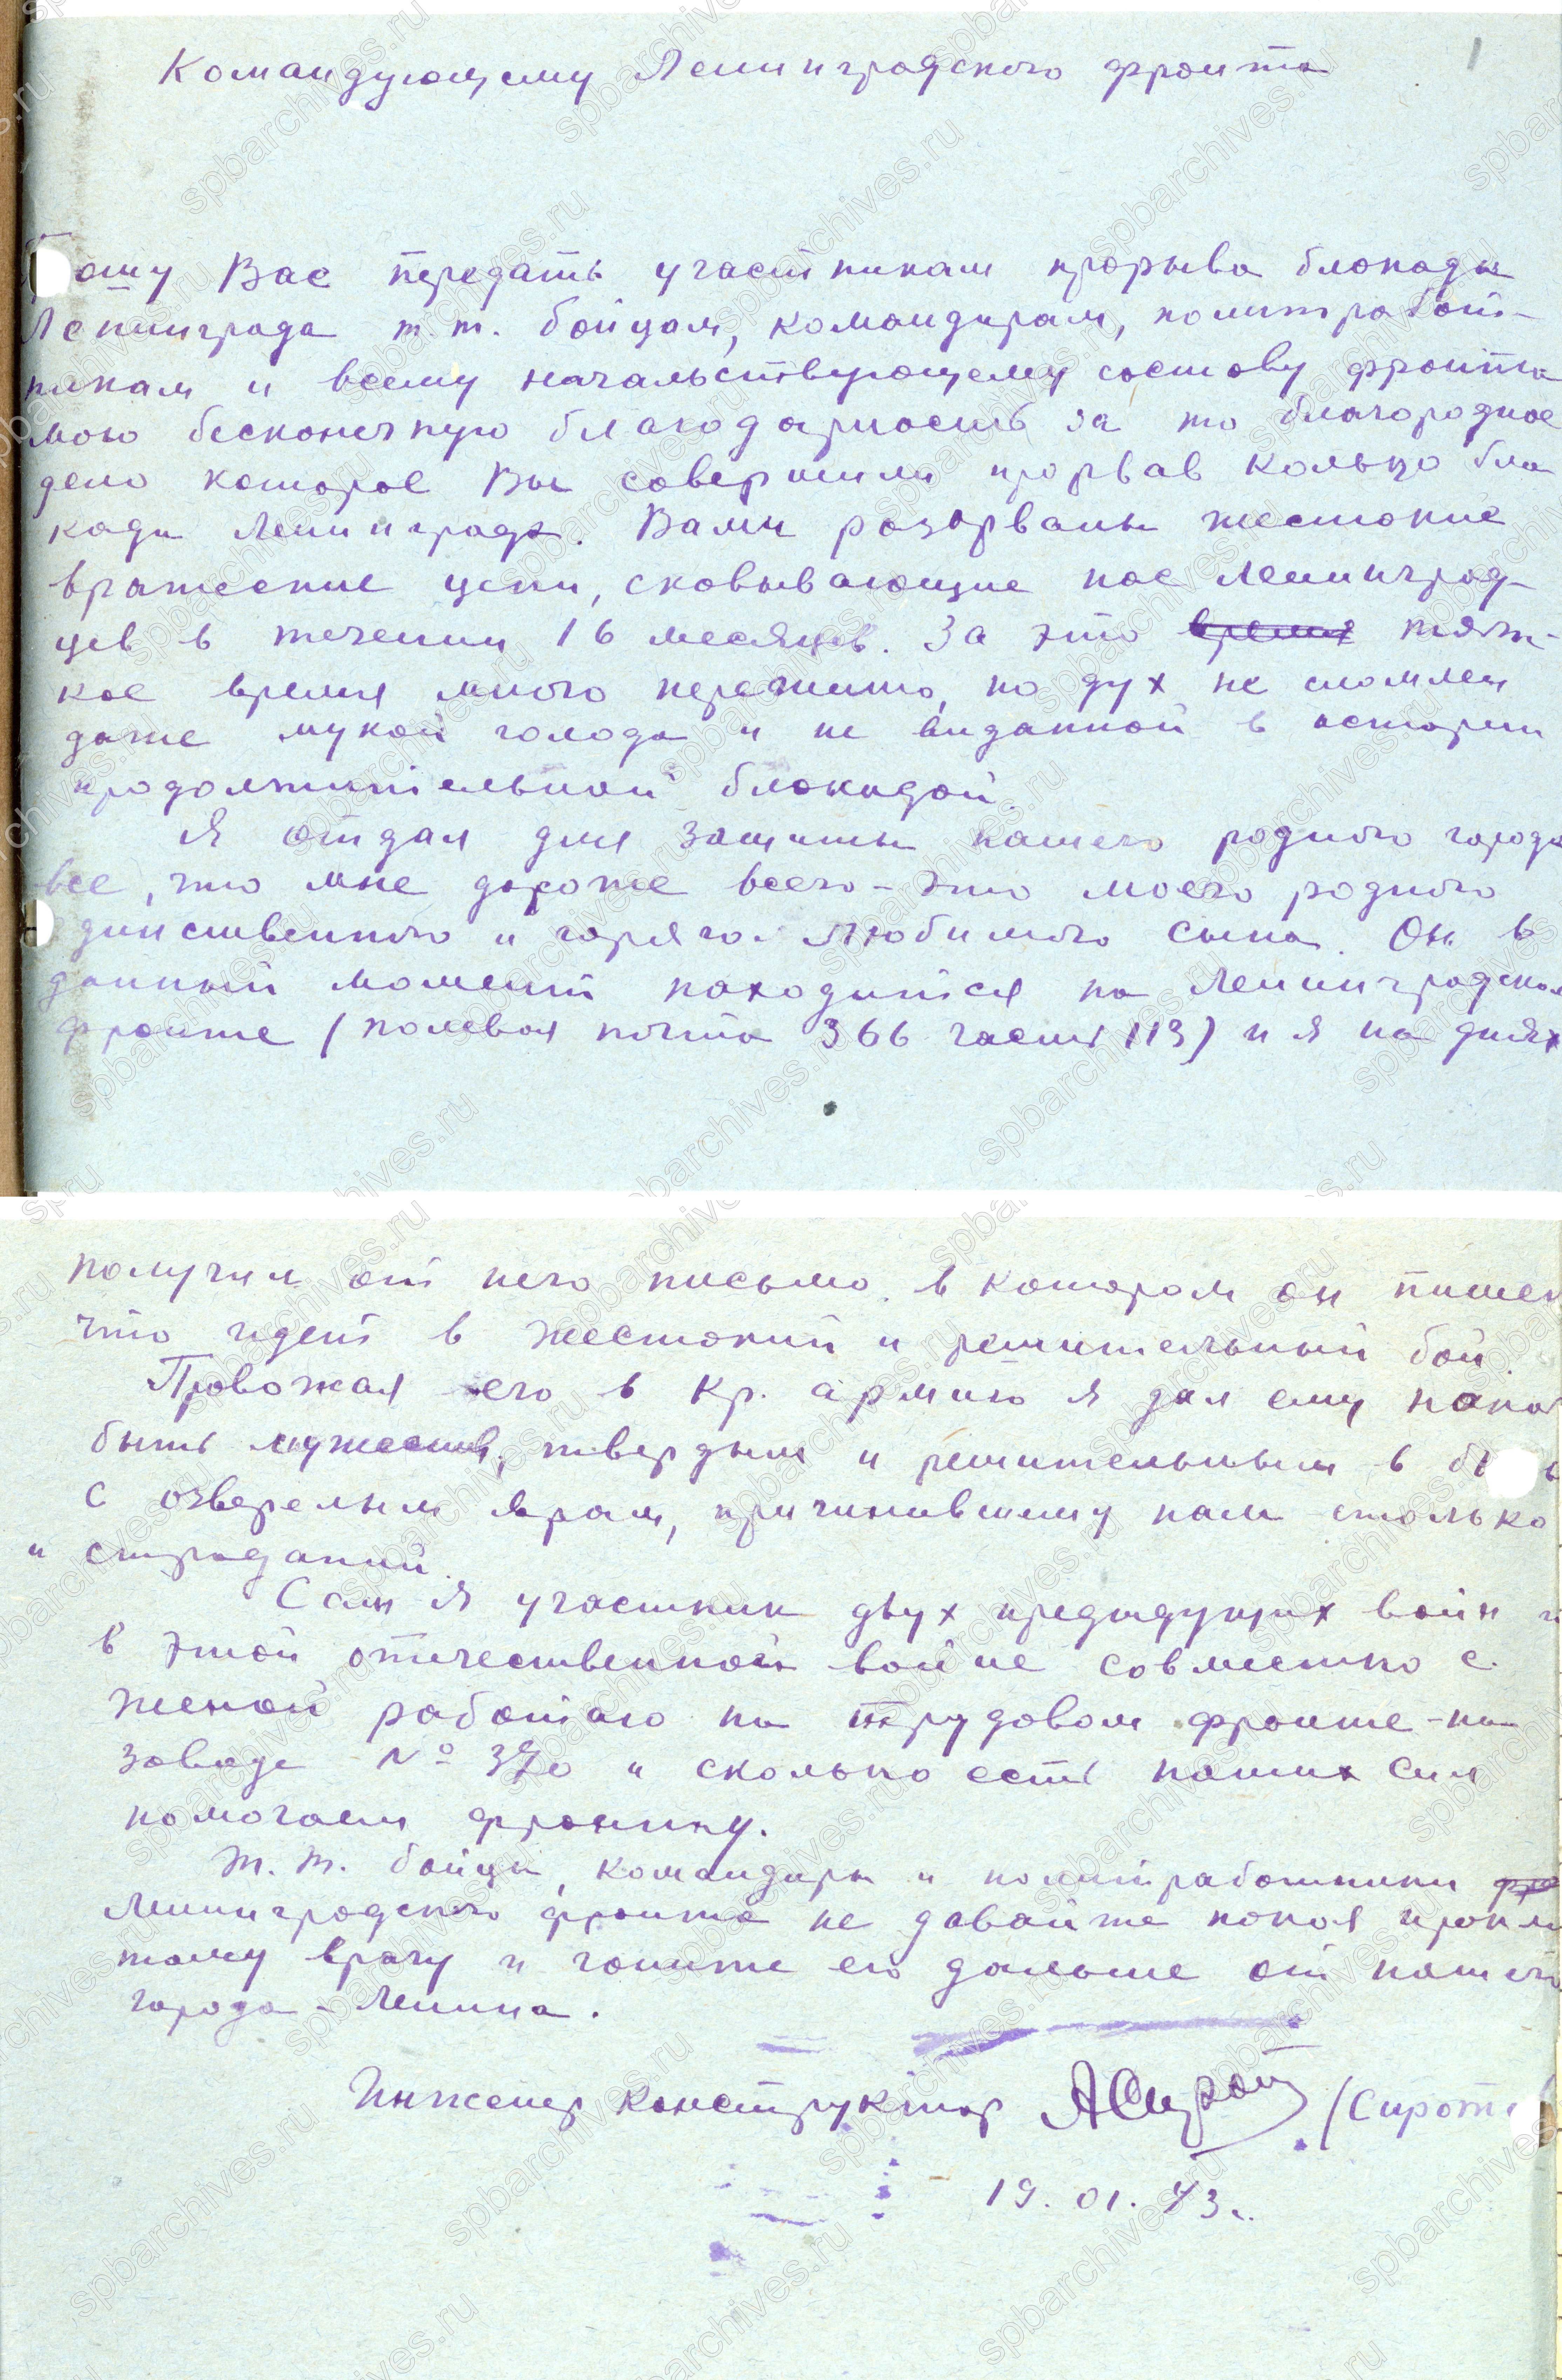 1
Командующему Ленинградского фронта
Прошу Вас передать участникам прорыва блокады
Ленинграда т.т. бойцам, командирам, политработ-
никам и всему начальствующему составу фронта
мою бесконечную благодарность за то благородное
дело которое Вы совершили прорвав кольцо бло
кады Ленинграда. Вами разорваны жестокие
вражеские цепи, сковывающие нас ленинград-
цев в течении 16 месяцев. За это время тяж-
кое время много пережито, но дух не сломлен
даже мукой голода и не виданной в истории
продолжительной блокадой.
Я отдал для защиты нашего родного города
все, что мне дороже всего - это моего родного
единственного и горячо любимого сына. Он в
данный момент находится на Ленинградском
фронте (полевая почта 366 часть 113) и я на днях
получил от него письмо, в котором он пишет
что идет в жестокий и решительный бой.
Провожая его в Кр. армию я дал ему наказ
быть мужеств., твердым и решительным в бою
с озверелым врагом, причинившему нам столько
и страданий.
Сам я участник двух предыдущих войн и
в этой отечественной войне совместно с
женой работаю на трудовом фронте - на
заводе № 370 и сколько есть наших сил
помогаем фронту.
Т.т. бойцы, командиры и политработники фро
Ленинградского фронта не давайте покоя прокля
тому врагу и гоните его дальше от нашего
города - Ленина.
Инженер конструктор АСирот (Сирот
19.01.43г.
spbarchives.ru